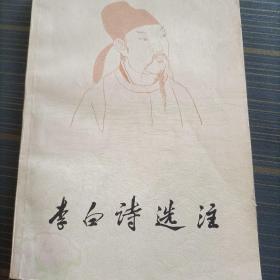 李白诗选注